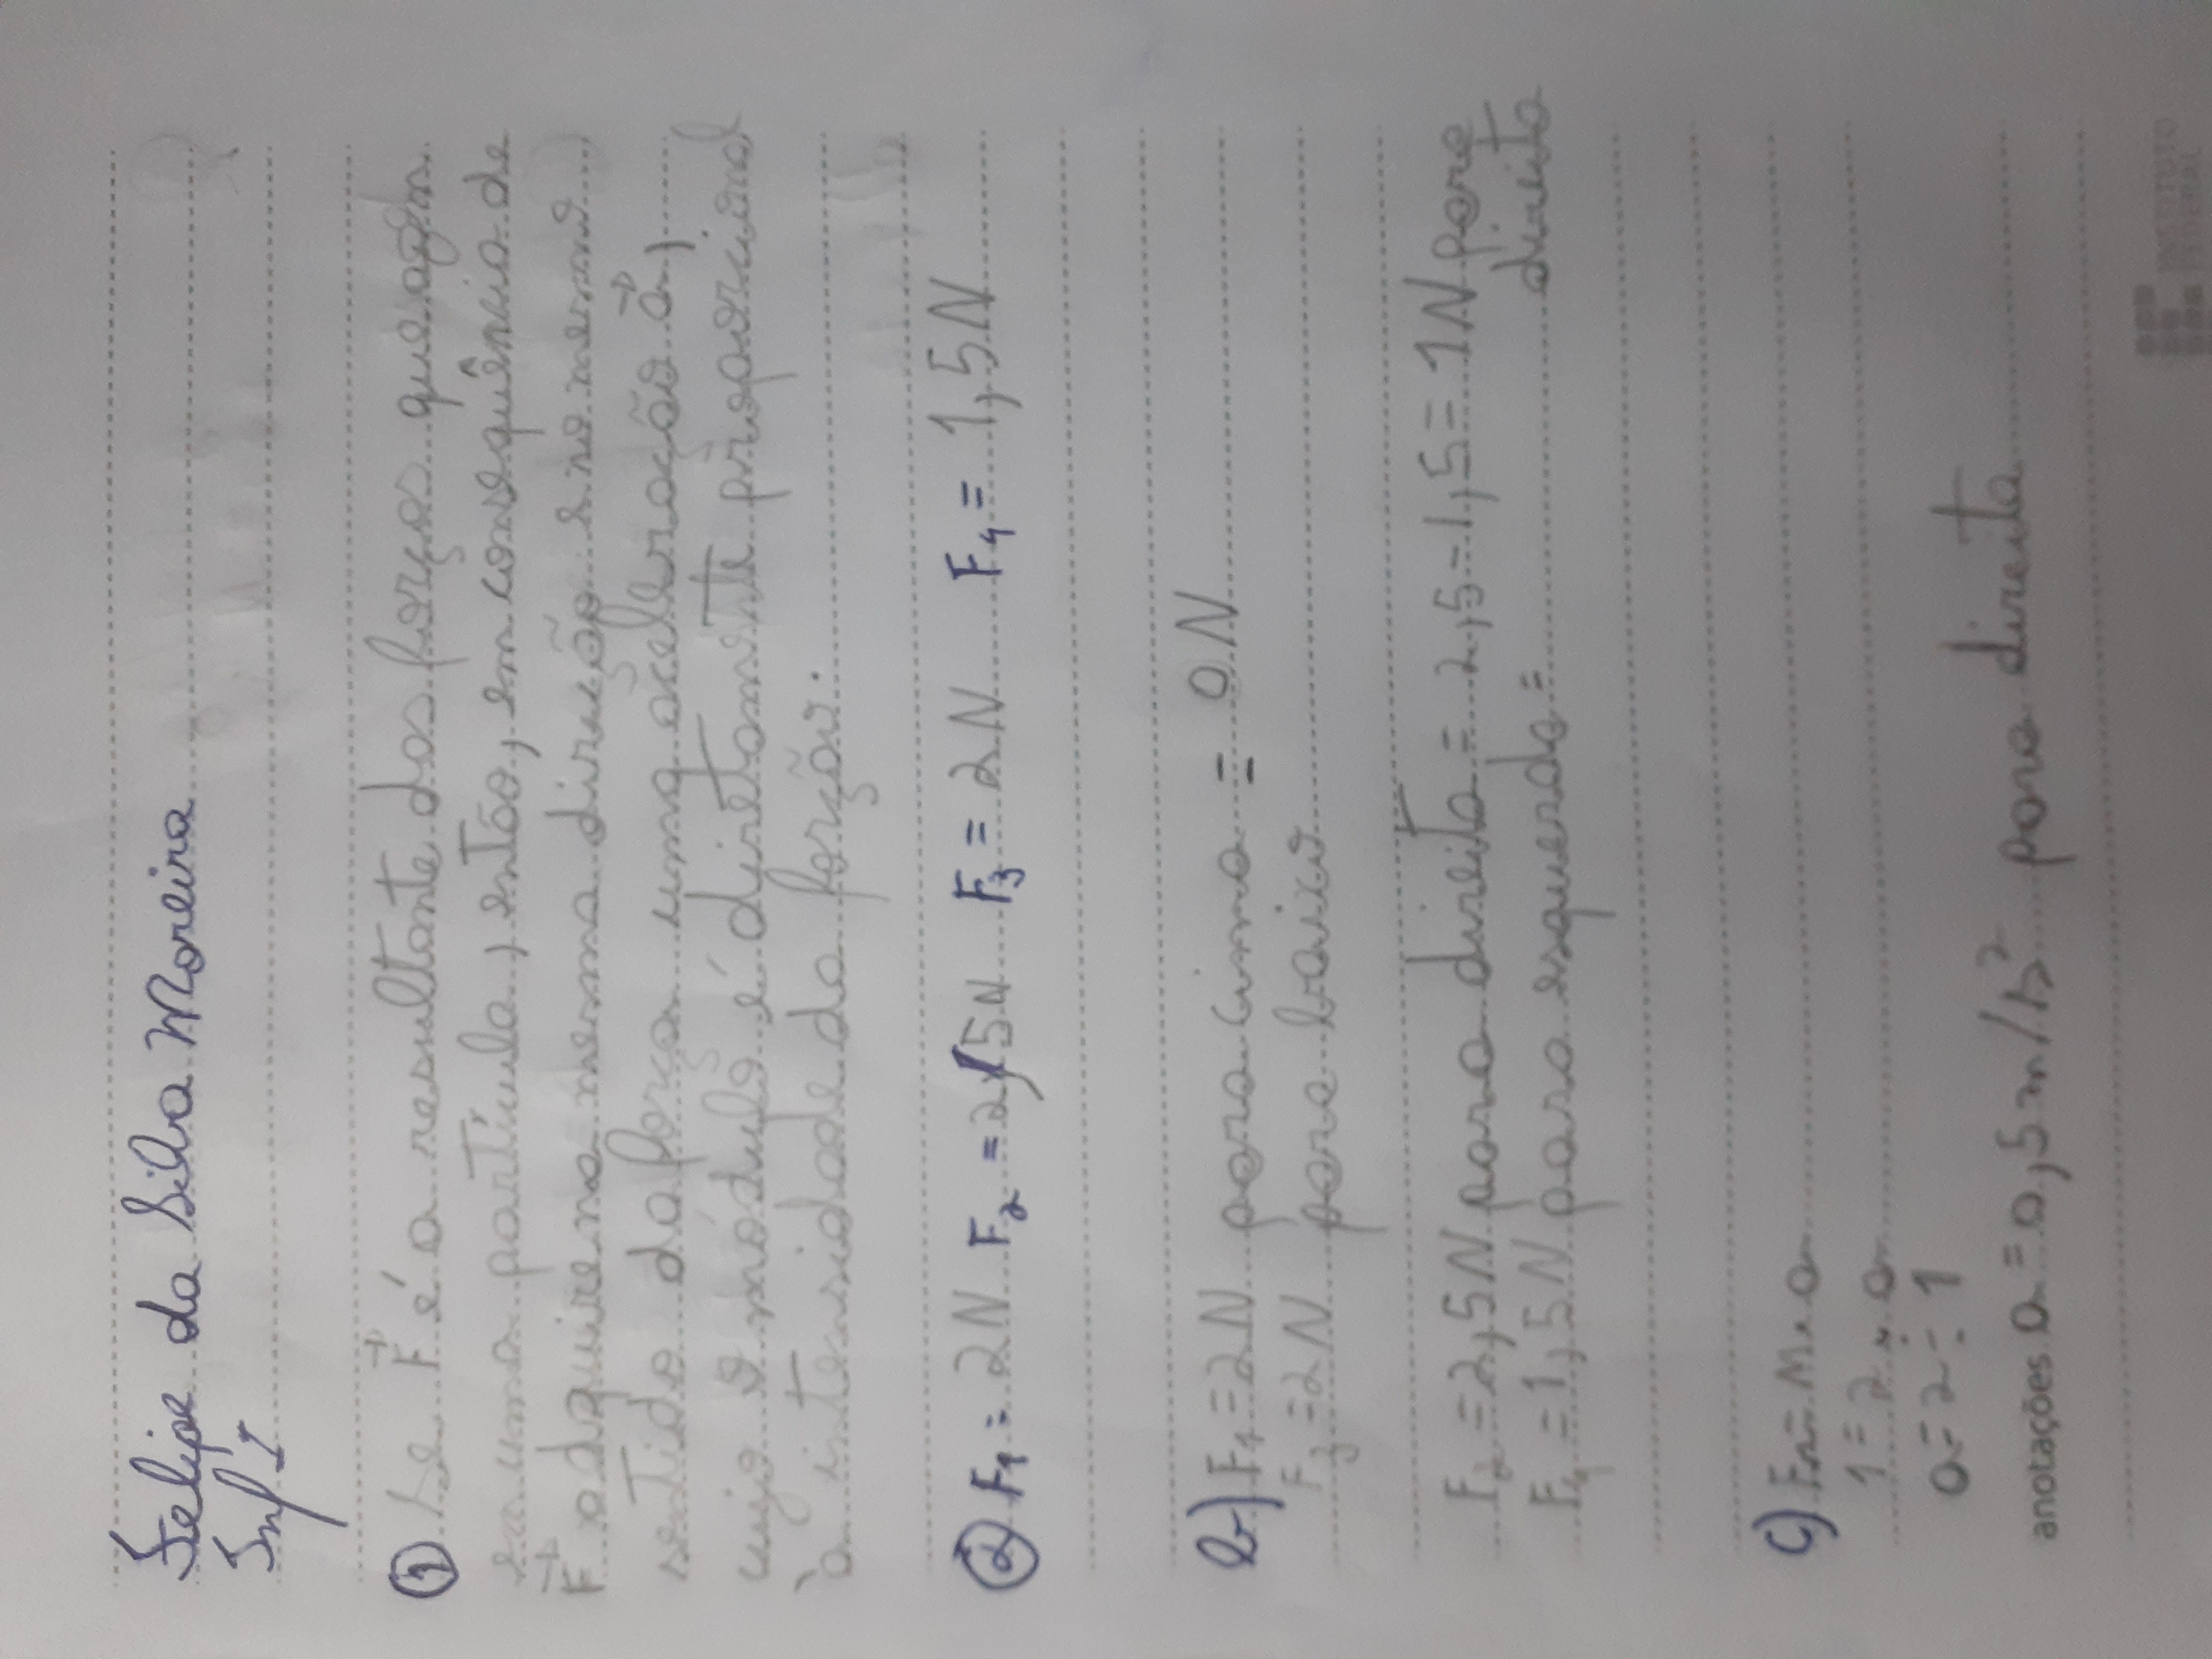 Felipe da Silva Moreira
Inf I
① Se F é a resultante das forças que agem
em uma partícula, então, em consequência de
F adquire na mesma direção e no mesmo
sentido da força uma aceleração a,
cujo o módulo é diretamente proporcional
à intensidade da forção.
② F1 = 2N F2 = 2,5N F3 = 2N F4 = 1,5N
b) F1 = 2N para cima = 0N
F3 = 2N para baixo
F2 = 2,5N para direita = 2,5-1,5 = 1N para
F4 = 1,5N para esquerda = direita
c) FR = M. a
1 = 2 . a
a = 2 ÷ 1
anotações a = 0,5 m/s² para direita
INSTITUTO
FEDERAL